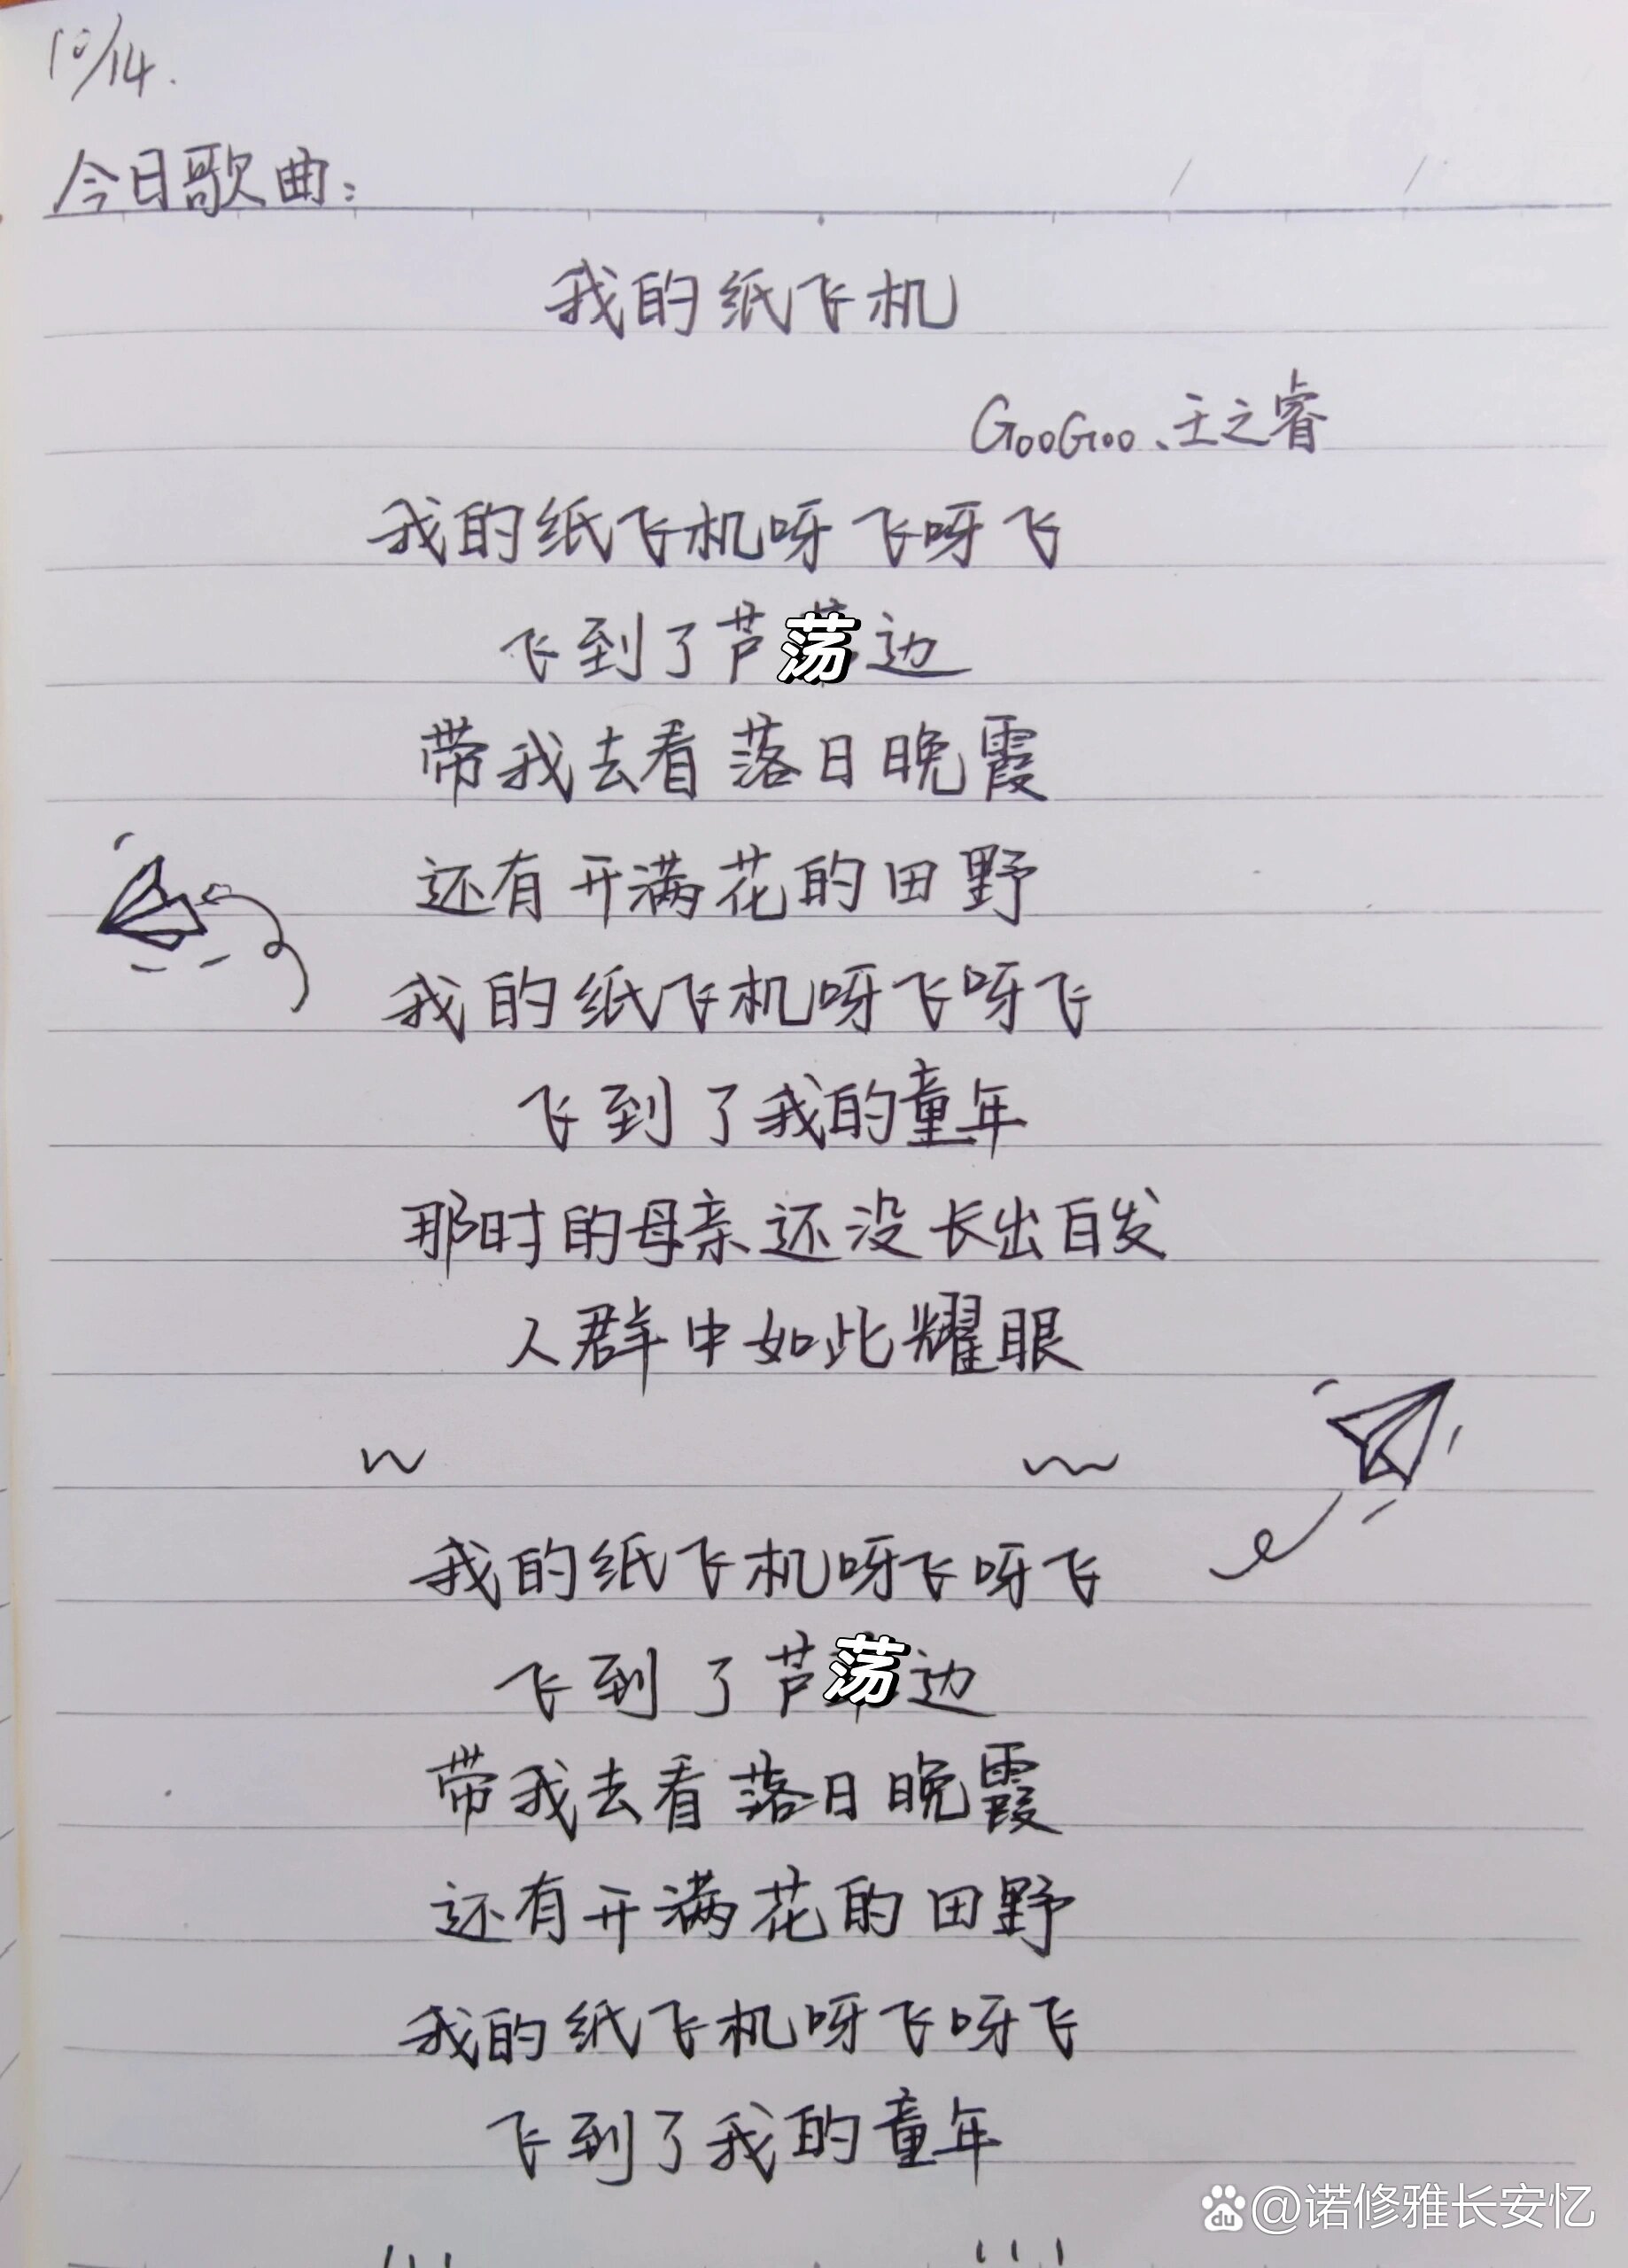 10/14.
今日歌曲：
我的纸飞机
GooGoo、王之睿
我的纸飞机呀飞呀飞
飞到了芦荡边
带我去看落日晚霞
还有开满花的田野
我的纸飞机呀飞呀飞
飞到了我的童年
那时的母亲还没长出白发
人群中如此耀眼
我的纸飞机呀飞呀飞
飞到了芦荡边
带我去看落日晚霞
还有开满花的田野
我的纸飞机呀飞呀飞
飞到了我的童年
du @诺修雅长安忆